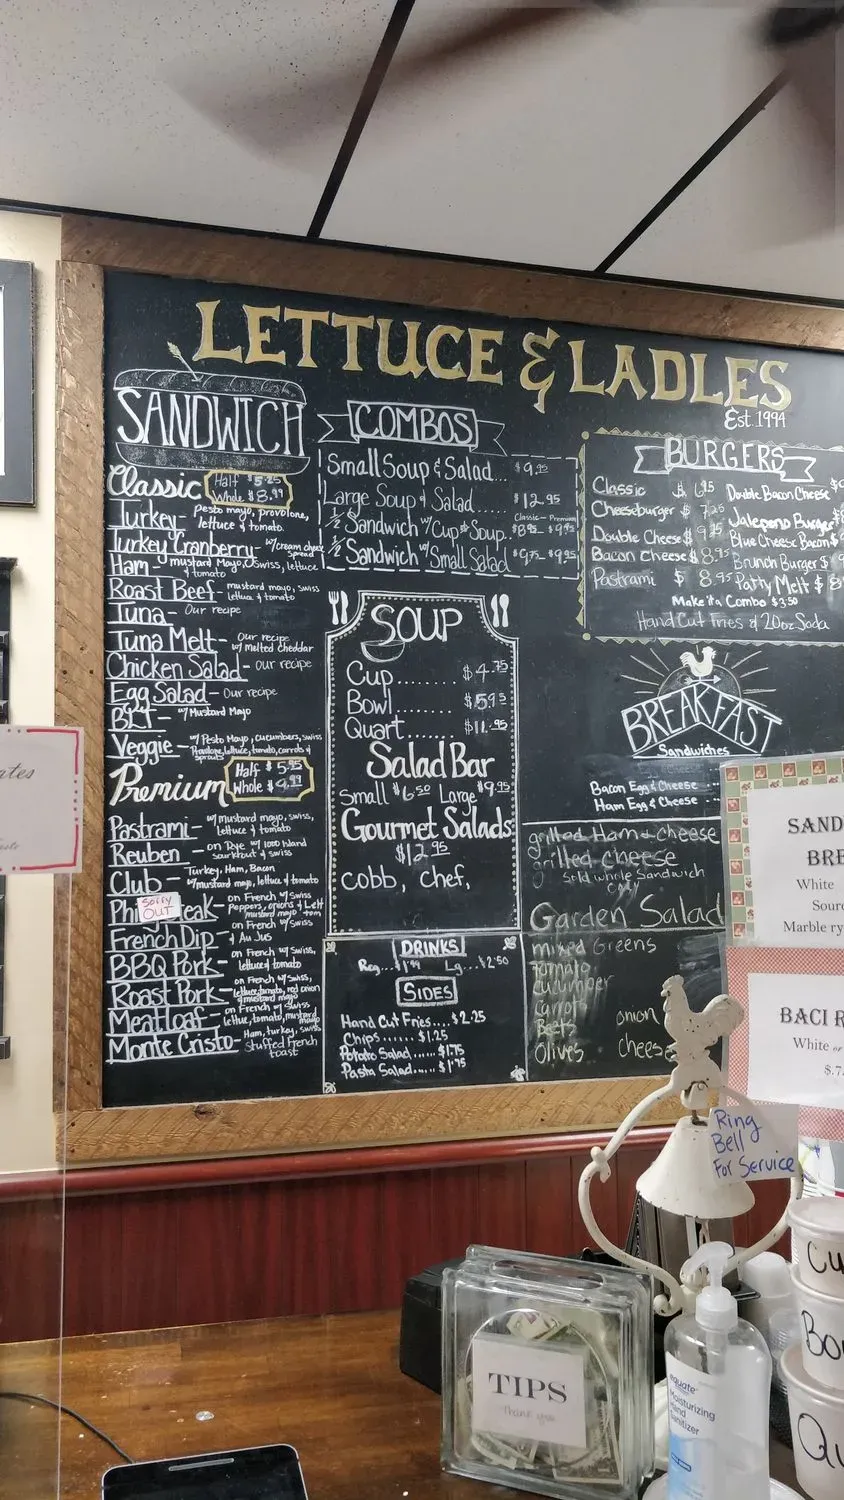 LETTUCE & LADLES
Est. 1994
SANDWICH
Classic Half $5.25
Whole $8.99
Turkey - pesto mayo, provolone,
lettuce & tomato.
Turkey Cranberry w/cream cheese
spread
Ham - mustard Mayo, swiss, lettuce
& tomato
Roast Beef - mustard mayo, swiss
lettuce & tomato
Tuna - Our recipe
Tuna Melt - Our recipe
w/ melted cheddar
Chicken Salad - our recipe
Egg Salad - Our recipe
BLT - w/ Mustard Mayo
Veggie - w/ Pesto Mayo, cucumbers, swiss
Provolone, lettuce, tomato, carrots &
sprouts
Premium Half $5.95
Whole $9.99
Pastrami - w/ mustard mayo, swiss,
lettuce & tomato
Reuben - on Rye w/ 1000 Island
sauerkraut & swiss
Club - Turkey, Ham, Bacon
w/ mustard mayo, lettuce & tomato
Sorry
OUT
on French w/ Swiss
peppers, onions &
French Dip - on French w/ Swiss
& Au Jus
BBQ Pork - on French w/ Swiss,
lettuce & tomato
Roast Pork - on French w/ Swiss,
lettuce, tomato, red onion
& mustard mayo
Meatloaf - on French w/ Swiss
lettuce, tomato, mustard
mayo
Monte Cristo - Ham, turkey, swiss
stuffed French
toast
COMBOS
Small Soup & Salad... $9.95
Large Soup & Salad..... $12.95
Classic - Premium
1/2 Sandwich w/ Cup Soup $8.95 - $9.95
1/2 Sandwich w/ Small Salad $9.75 - $9.95
SOUP
Cup.......... $4.75
Bowl.......... $5.95
Quart.......... $11.95
Salad Bar
Small $6.50 Large $9.95
Gourmet Salads
$12.95
Cobb, Chef,
DRINKS
Reg...$1.99 Lg...$2.50
SIDES
Hand Cut Fries.... $2.25
Chips...... $1.25
Potato Salad..... $1.75
Pasta Salad..... $1.75
BURGERS
Classic $6.95
Cheeseburger $7.25
Double Cheese
Bacon Cheese $8.95
Pastrami $8.95
Double Bacon Cheese
Jalepeno Burger
Blue Cheese Bacon
Brunch Burger
Patty Melt
Make it a Combo $3.50
Hand Cut Fries & 20oz Soda
BREAKFAST
Sandwiches
Bacon Egg & Cheese
Ham Egg & Cheese
grilled Ham & cheese
grilled cheese
sold whole sandwich
only
Garden Salad
mixed Greens
Tomato
cucumber
Carrots
Beets
Olives
onion
cheese
SAND
BRE
White
Sour
Marble ry
BACI R
White or
$.7
Ring
Bell
For Service
TIPS
thank you
equate
Moisturizing
Hand
Sanitizer
Cu
Bo
Qu
ates